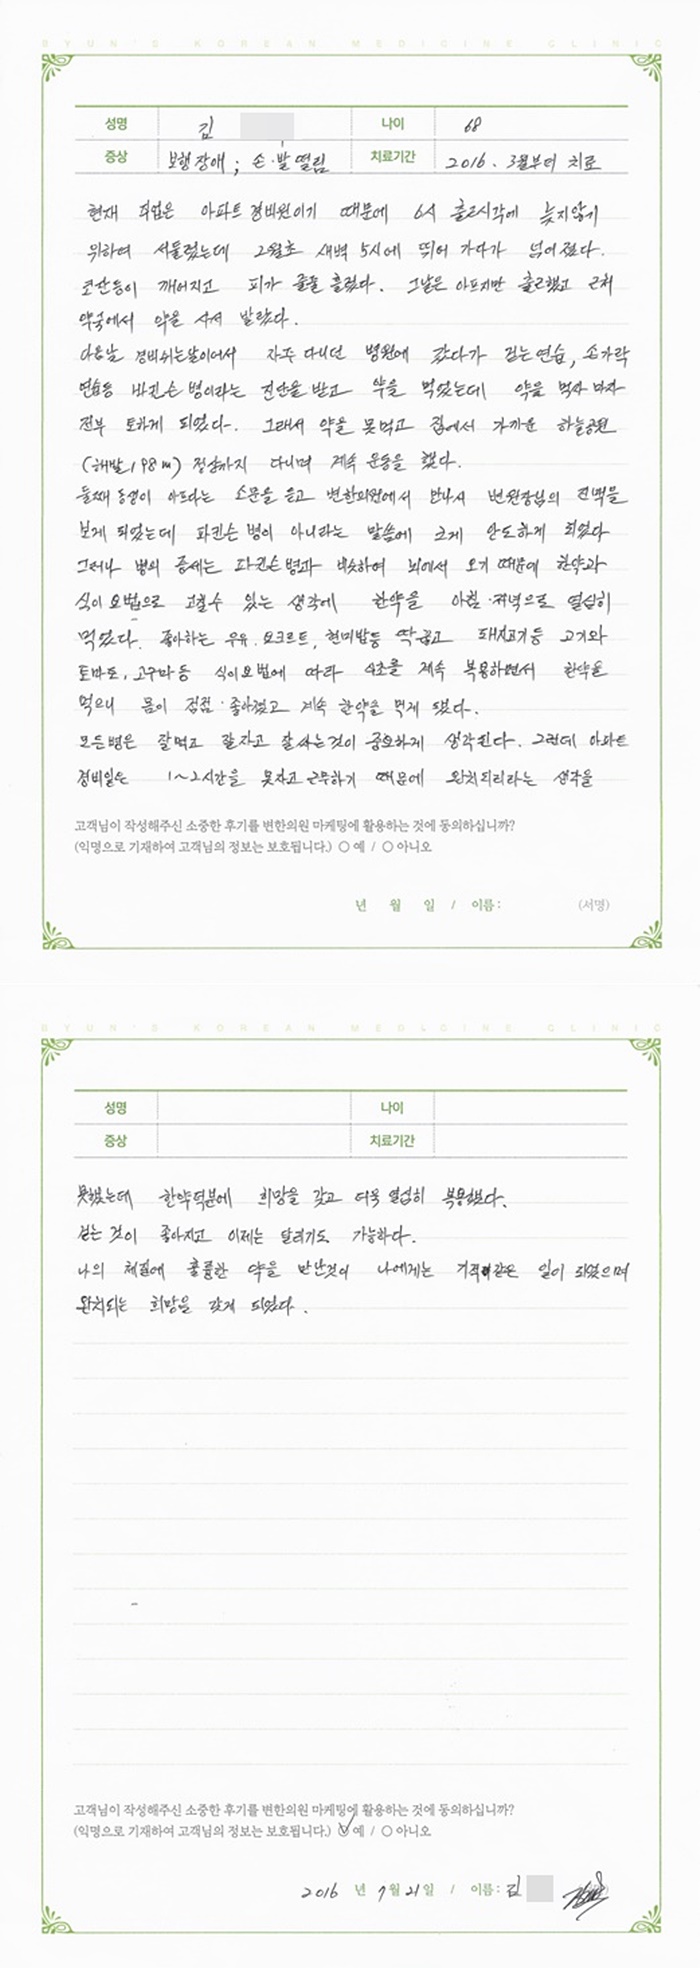 BYUN'S KOREAN MEDICINE CLINIC
성명 김 나이 68
증상 보행장애; 손·발 떨림 치료기간 2016. 3월부터 치료
현재 직업은 아파트 경비원이기 때문에 6시 출근시각에 늦지않기
위하여 서둘렀는데 2월초 새벽 5시에 뛰어 가다가 넘어졌다.
콧잔등이 깨어지고 피가 줄줄 흘렀다. 그날은 아프지만 출근했고 근처
약국에서 약을 사서 발랐다.
다음날 경비쉬는날이어서 자주 다니던 병원에 갔다가 걷는연습, 손가락
연습등 파킨슨병이라는 진단을 받고 약을 먹었는데 약을 먹자 마자
전부 토하게 되었다. 그래서 약을 못먹고 집에서 가까운 하늘공원
(해발 198m) 정상까지 다니며 계속 운동을 했다.
둘째 동생이 아프다는 소문을 듣고 변한의원에서 만나서 변원장님의 진맥을
보게 되었는데 파킨슨 병이 아니라는 말씀에 크게 안도하게 되었다
그러나 병의 증세는 파킨슨병과 비슷하여 뇌에서 오기 때문에 한약과
식이요법으로 고칠수 있는 생각에 한약을 아침·저녁으로 열심히
먹었다. 좋아하는 우유, 요크르트, 현미밥등 딱 끊고 돼지고기등 고기와
토마토, 고구마등 식이요법에 따라 식초를 계속 복용하면서 한약을
먹으니 몸이 점점 좋아졌고 계속 한약을 먹게 됐다.
모든병은 잘먹고 잘자고 잘싸는것이 중요하게 생각된다. 그런데 아파트
경비일은 1~2시간을 못자고 근무하기 때문에 완치되리라는 생각을
고객님이 작성해주신 소중한 후기를 변한의원 마케팅에 활용하는 것에 동의하십니까?
(익명으로 기재하여 고객님의 정보는 보호됩니다.) ○ 예 / ○ 아니오
년 월 일 / 이름 : (서명)
BYUN'S KOREAN MEDICINE CLINIC
성명 나이
증상 치료기간
못했는데 한약덕분에 희망을 갖고 더욱 열심히 복용했다.
걷는 것이 좋아지고 이제는 달리기도 가능하다.
나의 체질에 훌륭한 약을 만난것이 나에게는 기적같은 일이 되었으며
완치되는 희망을 갖게 되었다.
고객님이 작성해주신 소중한 후기를 변한의원 마케팅에 활용하는 것에 동의하십니까?
(익명으로 기재하여 고객님의 정보는 보호됩니다.) ○ 예 / ○ 아니오
2016 년 7 월 21 일 / 이름 : 김